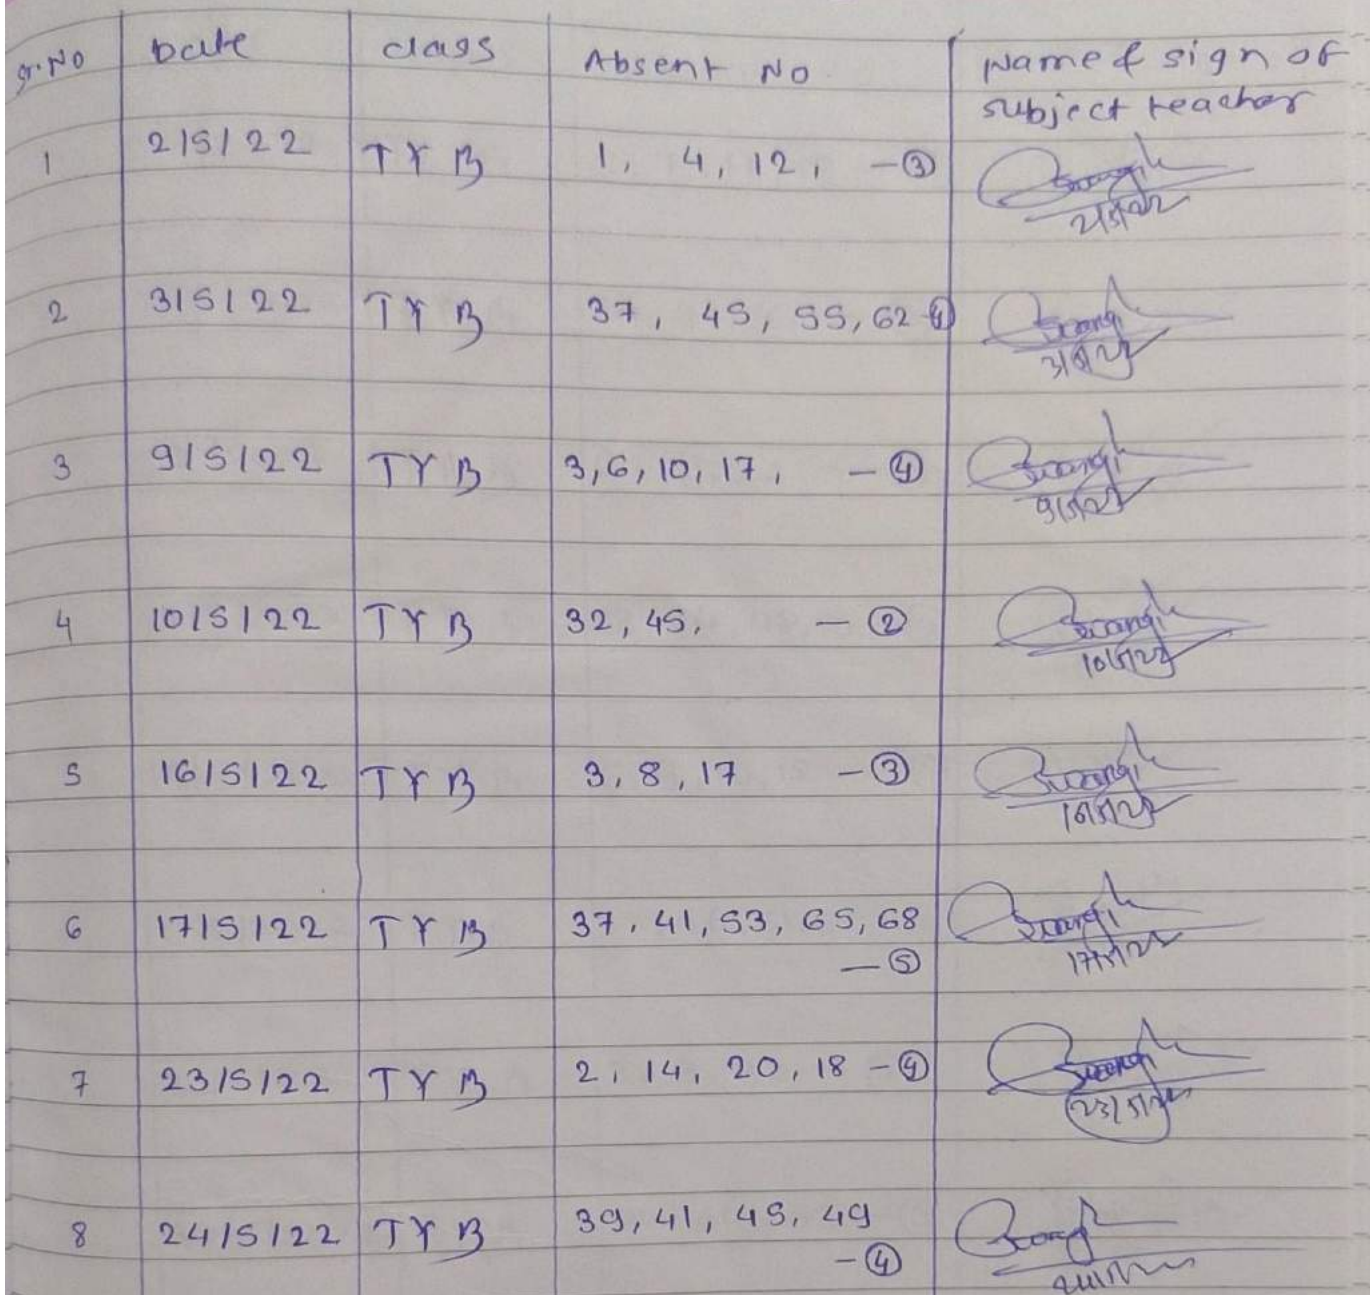 Sr. No Date class Absent No Name & sign of
subject teacher
1 2/5/22 TYB 1, 4, 12, - ③
2/5/22
2 3/5/22 TYB 37, 45, 55, 62 - ④
3/5/22
3 9/5/22 TYB 3, 6, 10, 17, - ④
9/5/22
4 10/5/22 TYB 32, 45, - ②
10/5/22
5 16/5/22 TYB 3, 8, 17 - ③
16/5/22
6 17/5/22 TYB 37, 41, 53, 65, 68
- ⑤ 17/5/22
7 23/5/22 TYB 2, 14, 20, 18 - ④
23/5/22
8 24/5/22 TYB 39, 41, 45, 49
- ④